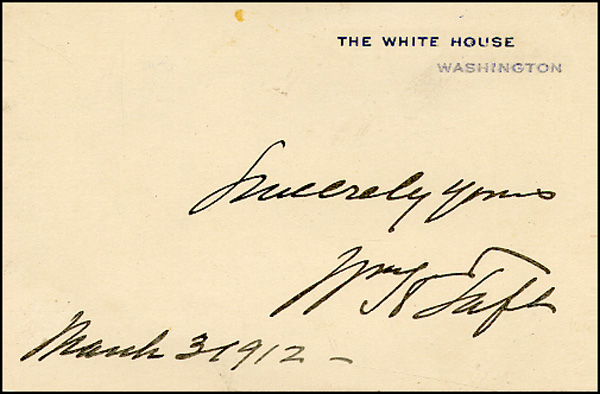 THE WHITE HOUSE
WASHINGTON
Sincerely yours
Wm H Taft
March 3 1912 –